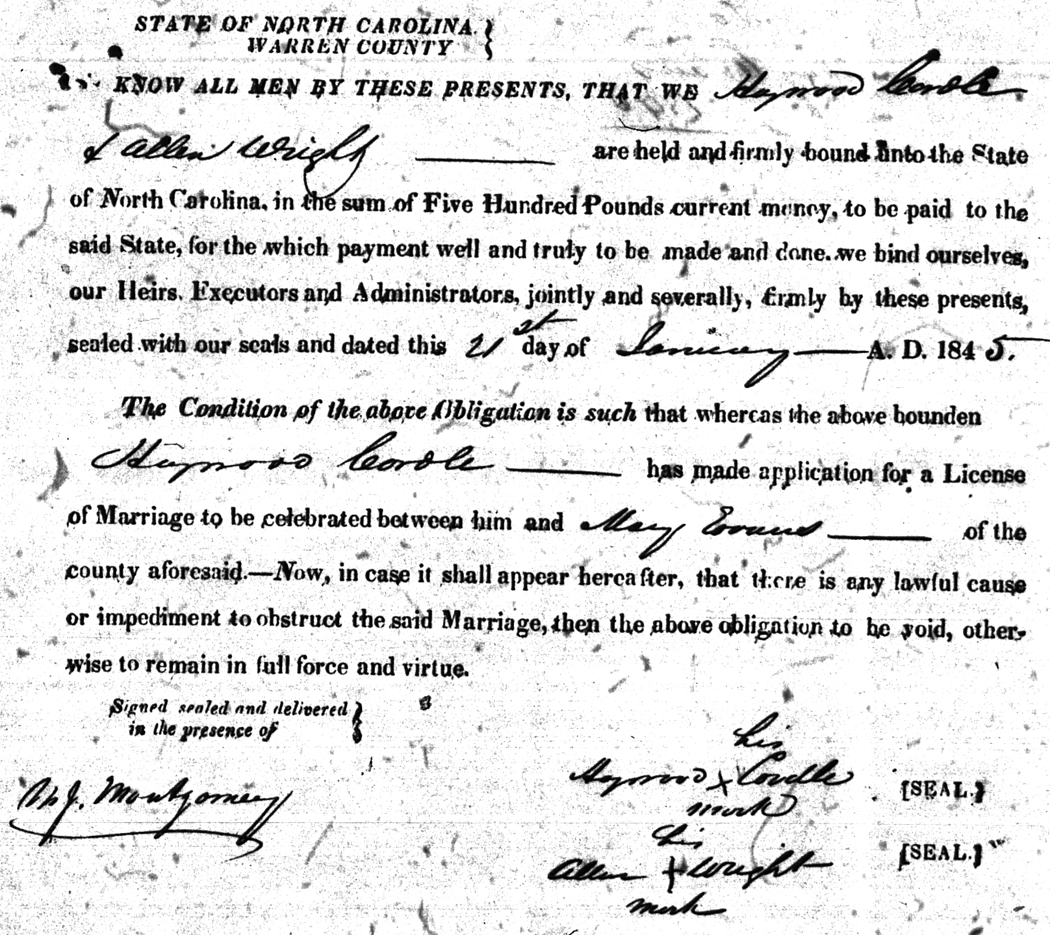 STATE OF NORTH CAROLINA. }
WARREN COUNTY }
KNOW ALL MEN BY THESE PRESENTS, THAT WE Haywood Cordle
& Allen Wright ——— are held and firmly bound unto the State
of North Carolina, in the sum of Five Hundred Pounds current money, to be paid to the
said State, for the which payment well and truly to be made and done. we bind ourselves,
our Heirs. Executors and Administrators, jointly and severally, firmly by these presents,
sealed with our seals and dated this 21st day of January — A. D. 1845.
The Condition of the above Obligation is such that whereas the above bounden
Haywood Cordle ——— has made application for a License
of Marriage to be celebrated between him and Mary Evans ——— of the
county aforesaid.—Now, in case it shall appear hereafter, that there is any lawful cause
or impediment to obstruct the said Marriage, then the above obligation to be void, other-
wise to remain in full force and virtue.
Signed sealed and delivered }
in the presence of
his
Haywood X Cordle [SEAL.]
mark
Montgomery
his
Allen X Wright [SEAL.]
mark